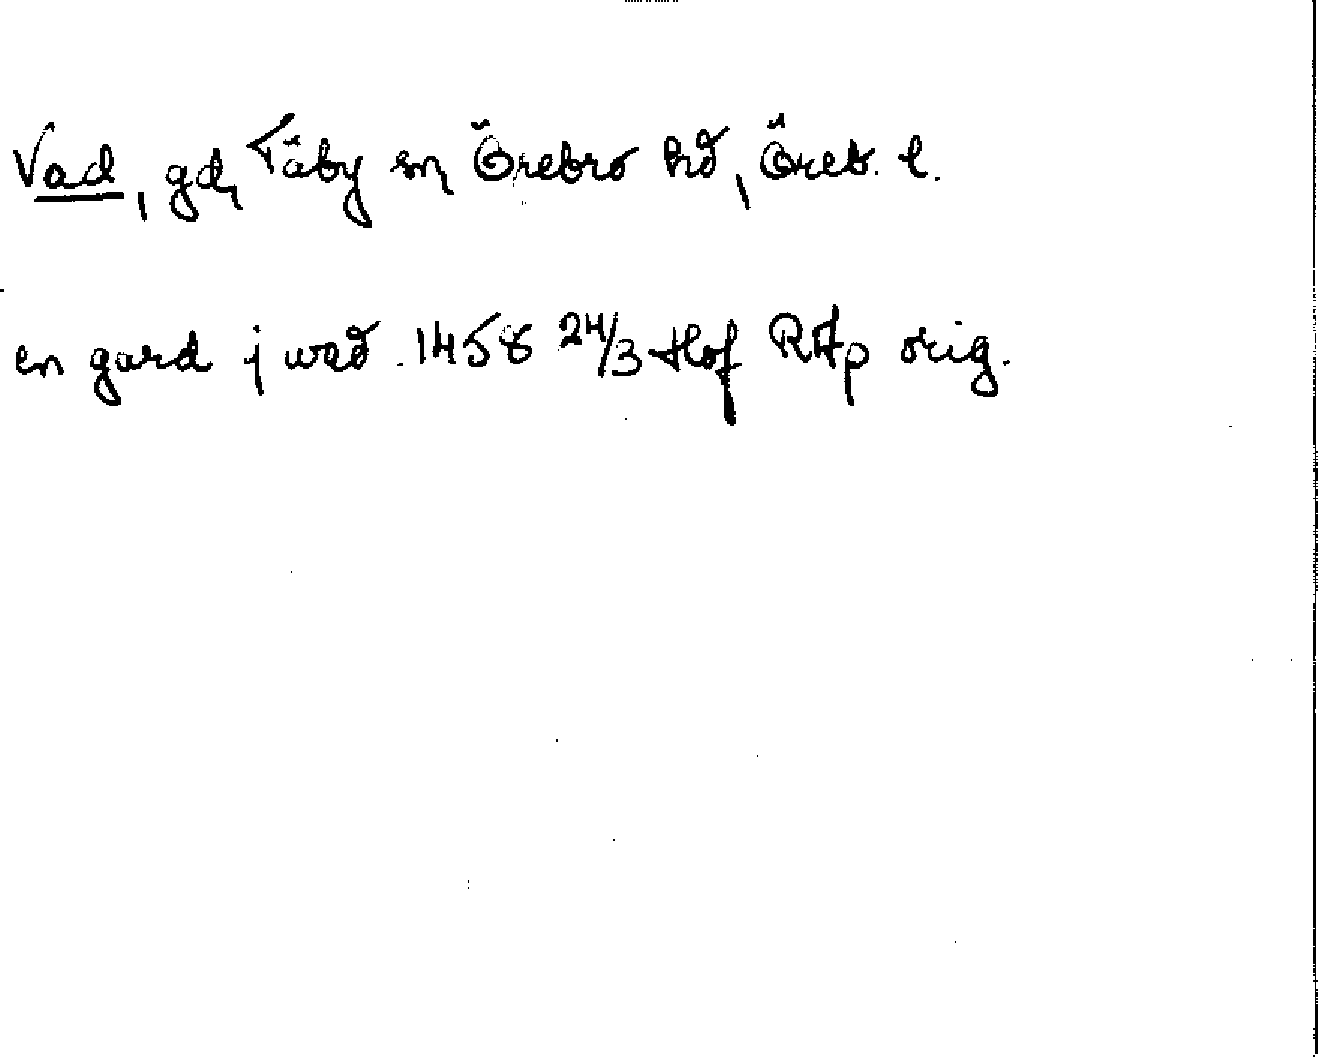 Vad, gd, Täby sn Örebro hd, Öreb. l.
en gard j wad. 1458 24/3 Hof RAp orig.